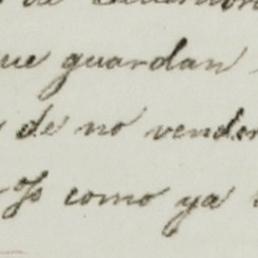 de
que guardan
de no vender
como ya